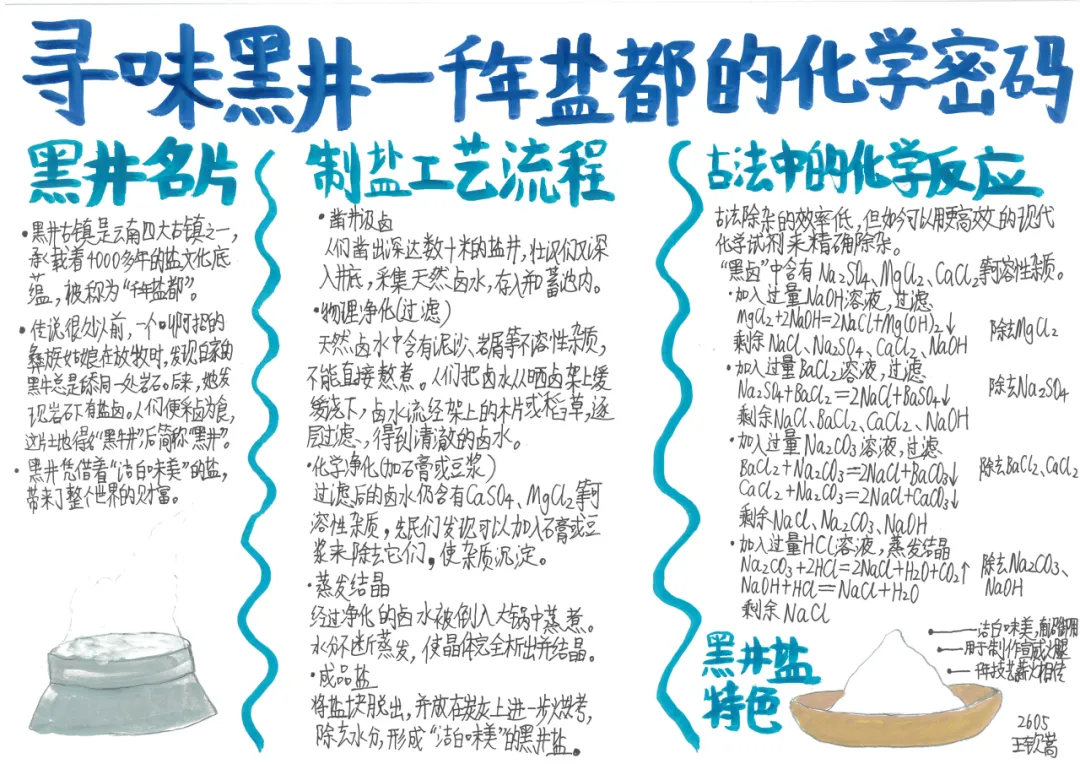 寻味黑井—千年盐都的化学密码
黑井名片
·黑井古镇是云南四大古镇之一,
承载着4000多年的盐文化底
蕴,被称为“千年盐都”。
·传说很久以前,一个叫阿招的
彝族姑娘在放牧时,发现自家的
黑牛总是舔同一处岩石。后来,她发
现岩石下有盐卤。人们便采卤为食,
这片土地得名“黑牛井”后简称“黑井”。
·黑井凭借着“洁白味美”的盐,
带来了整个世界的财富。
制盐工艺流程
·凿井汲卤
人们凿出深达数十米的盐井,壮汉们又深
入井底,采集天然卤水,存入井和蓄池内。
·物理净化(过滤)
天然卤水中含有泥沙、岩屑等不溶性杂质,
不能直接熬煮。人们把卤水从晒卤架上缓
缓浇下,卤水流经架上的木片或稻草,逐
层过滤、,得到清澈的卤水。
·化学净化(加石膏或豆浆)
过滤后的卤水仍含有CaSO₄、MgCl₂等可
溶性杂质,先民们发现可以加入石膏或豆
浆来除去它们,使杂质沉淀。
·蒸发结晶
经过净化的卤水被倒入大锅中蒸煮。
水分不断蒸发,使晶体完全析出并结晶。
·成品盐
将盐块脱出,并放在炭灰上进一步烘烤,
除去水分,形成“洁白味美”的黑井盐。
古法中的化学反应
古法除杂的效率低,但如今可以用更高效的现代
化学试剂来精确除杂。
“黑卤”中含有Na₂SO₄、MgCl₂、CaCl₂等可溶性杂质。
·加入过量NaOH溶液,过滤
MgCl₂+2NaOH=2NaCl+Mg(OH)₂↓
除去MgCl₂
剩余NaCl、Na₂SO₄、CaCl₂、NaOH
·加入过量BaCl₂溶液,过滤
Na₂SO₄+BaCl₂=2NaCl+BaSO₄↓
除去Na₂SO₄
剩余NaCl、BaCl₂、CaCl₂、NaOH
·加入过量Na₂CO₃溶液,过滤
BaCl₂+Na₂CO₃=2NaCl+BaCO₃↓
除去BaCl₂、CaCl₂
CaCl₂+Na₂CO₃=2NaCl+CaCO₃↓
剩余NaCl、Na₂CO₃、NaOH
·加入过量HCl溶液,蒸发结晶
Na₂CO₃+2HCl=2NaCl+H₂O+CO₂↑
除去Na₂CO₃、
NaOH
NaOH+HCl=NaCl+H₂O
剩余NaCl
黑井盐
特色
洁白味美,
用于制作宣威火腿
千年技艺薪火相传
2605
王钦嵩